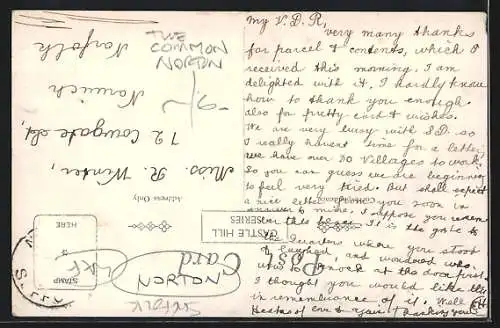 My V. D. R,
very many thanks
for parcel & contents, which I
received this morning. I am
delighted with it. I hardly know
how to thank you enough
also for pretty card & wishes.
We are very busy with S.D. so
I really haven't time for a letter
we have over 30 Villages to work,
So you can guess we are beginning
to feel very tired. But shall expect
a nice letter from you soon in
answer to mine. I suppose you remember
this
It is the gate to
the Quarters where you stood
& laughed, and wondered who
was to knock at the door first.
I thought you would like this
in remembrance of it. Well
Heaps of love &
Thanking you
Miss. R. Winter,
72 Cowgate St,
Norwich
Norfolk
THE
COMMON
NORTON
9/-
Address Only
CASTLE HILL
SERIES
Post Card
STAMP
HERE
NORTON
Suffolk